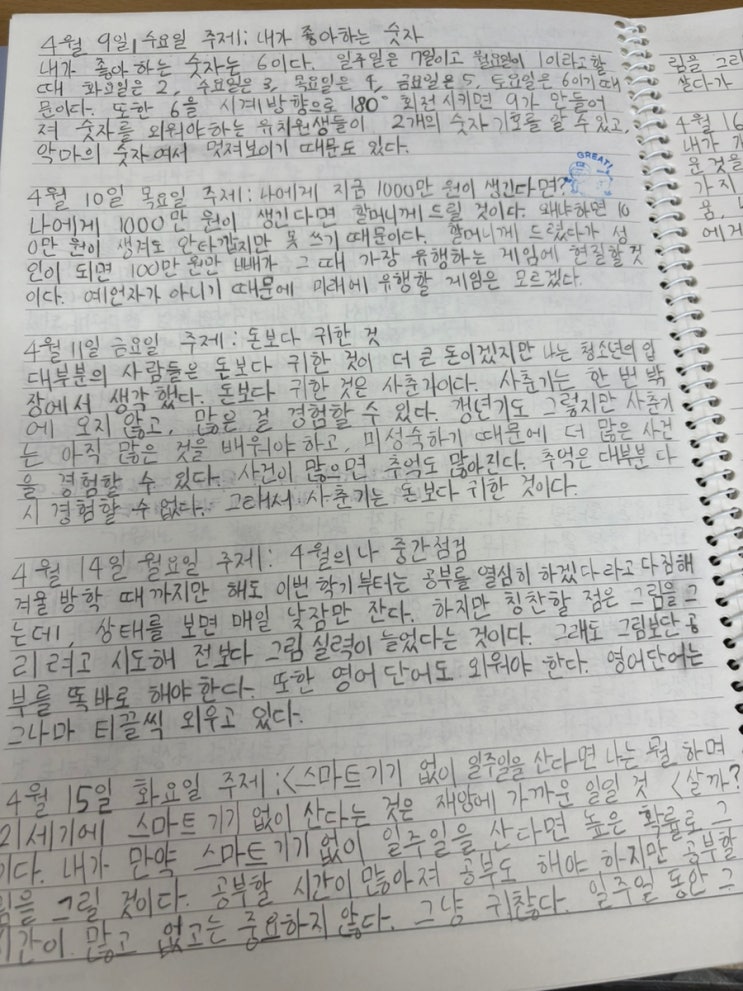 4월 9일 수요일 주제: 내가 좋아하는 숫자
내가 좋아하는 숫자는 6이다. 일주일은 7일이고 월요일이 1이라고 할
때 화요일은 2, 수요일은 3, 목요일은 4, 금요일은 5, 토요일은 6이기 때
문이다. 또한 6을 시계방향으로 180° 회전시키면 9가 만들어
져 숫자를 외워야하는 유치원생들이 2개의 숫자기호를 알 수 있고,
악마의 숫자여서 멋져보이기 때문도 있다.
GREAT!
4월 10일 목요일 주제: 나에게 지금 1000만 원이 생긴다면?
나에게 1000만 원이 생긴다면 할머니께 드릴 것이다. 왜냐하면 10
0만 원이 생겨도 안타깝지만 못 쓰기 때문이다. 할머니께 드렸다가 성
인이 되면 100만 원만 빼가 그 때 가장 유행하는 게임에 현질할 것
이다. 예언자가 아니기 때문에 미래에 유행할 게임은 모르겠다.
4월 11일 금요일 주제: 돈보다 귀한 것
대부분의 사람들은 돈보다 귀한 것이 더 큰 돈이겠지만 나는 청소년의 입
장에서 생각했다. 돈보다 귀한 것은 사춘기이다. 사춘기는 한 번 밖
에 오지 않고, 많은 걸 경험할 수 있다. 갱년기도 그렇지만 사춘기
는 아직 많은 것을 배워야 하고, 미성숙하기 때문에 더 많은 사건
을 경험할 수 있다. 사건이 많으면 추억도 많아진다. 추억은 대부분 다
시 경험할 수 없다. 그래서 사춘기는 돈보다 귀한 것이다.
4월 14일 월요일 주제: 4월의 나 중간점검
겨울 방학 때까지만 해도 이번 학기부터는 공부를 열심히 하겠다라고 다짐해
는데, 상태를 보면 매일 낮잠만 잔다. 하지만 칭찬할 점은 그림을 그
리려고 시도해 전보다 그림 실력이 늘었다는 것이다. 그래도 그림보단 공
부를 똑바로 해야한다. 또한 영어 단어도 외워야 한다. 영어단어는
그나마 티끌씩 외우고 있다.
4월 15일 화요일 주제: <스마트기기 없이 일주일을 산다면 나는 뭘 하며
<살까?
21세기에 스마트 기기 없이 산다는 것은 재앙에 가까운 일일 것
이다. 내가 만약 스마트 기기 없이 일주일을 산다면 높은 확률로 그
림을 그릴 것이다. 공부할 시간이 많아져 공부도 해야 하지만 공부할
시간이 많고 없고는 중요하지 않다. 그냥 귀찮다. 일주일 동안 그
림을 그리
살다가
4월 16
내가
운 것을
가지
움,
에게